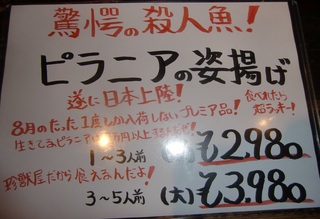 驚愕の殺人魚!
ピラニアの姿揚げ
遂に日本上陸!
食べれたら
超ラッキー!
8月のたった1度しか入荷しないプレミア品!
生きてるピラニア 万円以上
1~3人前 (小)¥2.980
珍獣屋だから食えるんだよ!
3~5人前 (大)¥3.980